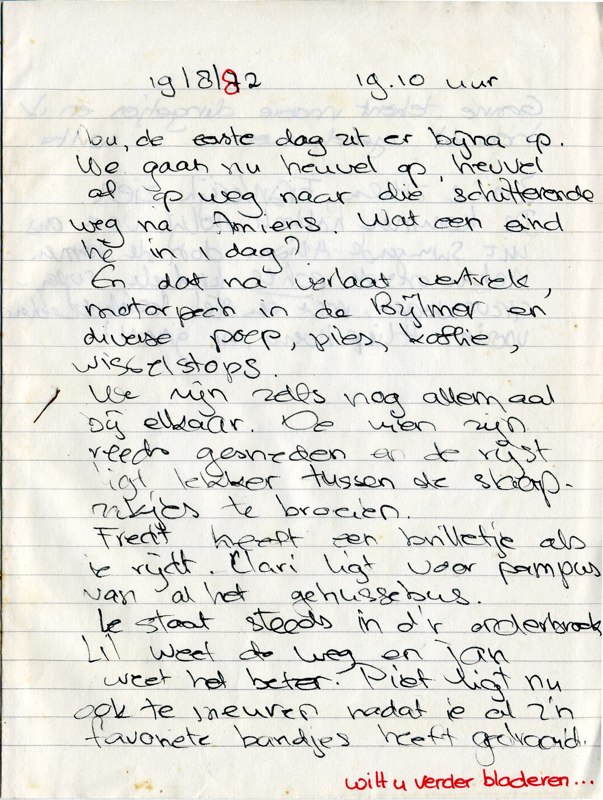 19/8/82 19.10 uur
Nou, de eerste dag zit er bijna op.
We gaan nu heuvel op, heuvel
af op weg naar die schitterende
weg na Amiens. Wat een eind
hè in 1 dag?
En dat na verlaat vertrek,
motorpech in de Bijlmer en
diverse poep, pies, koffie,
wisselstops.
We zijn zelfs nog allemaal
bij elkaar. De uien zijn
reeds gesneden en de rijst
ligt lekker tussen de slaap-
zakjes te broeien.
Fredt heeft een brilletje als
ie rijdt. Clari ligt voor pampus
van al het gehussebus.
Ze staat steeds in d'r onderbroek
Lil weet de weg en Jan
weet het beter. Piet ligt nu
ook te meuren nadat ie al z'n
favoriete bandjes heeft gedraaid.
wilt u verder bladeren...